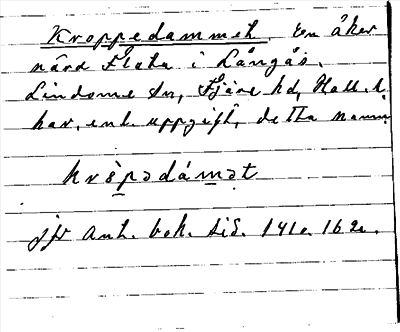 Kroppedammet. En åker
nära Flata i Långås,
Lindome sn, Fjäre hd, Hall. l.
har, enl. uppgift, detta namn
krὲpədámət
jfr Ant. bok. sid. 141 o. 162.